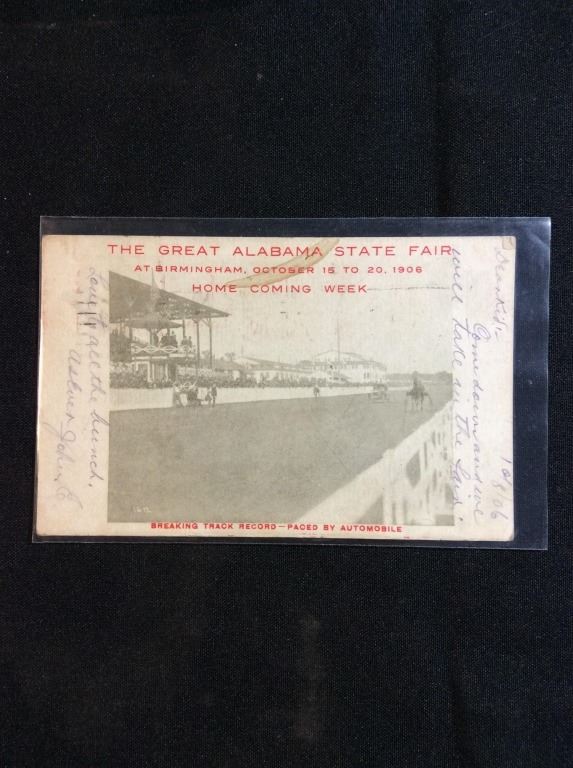 THE GREAT ALABAMA STATE FAIR
AT BIRMINGHAM, OCTOBER 15 TO 20, 1906
HOME COMING WEEK
BREAKING TRACK RECORD—PACED BY AUTOMOBILE
10/8/06
Come down and we
will take in the fair.
Love to all the bunch.
As ever John